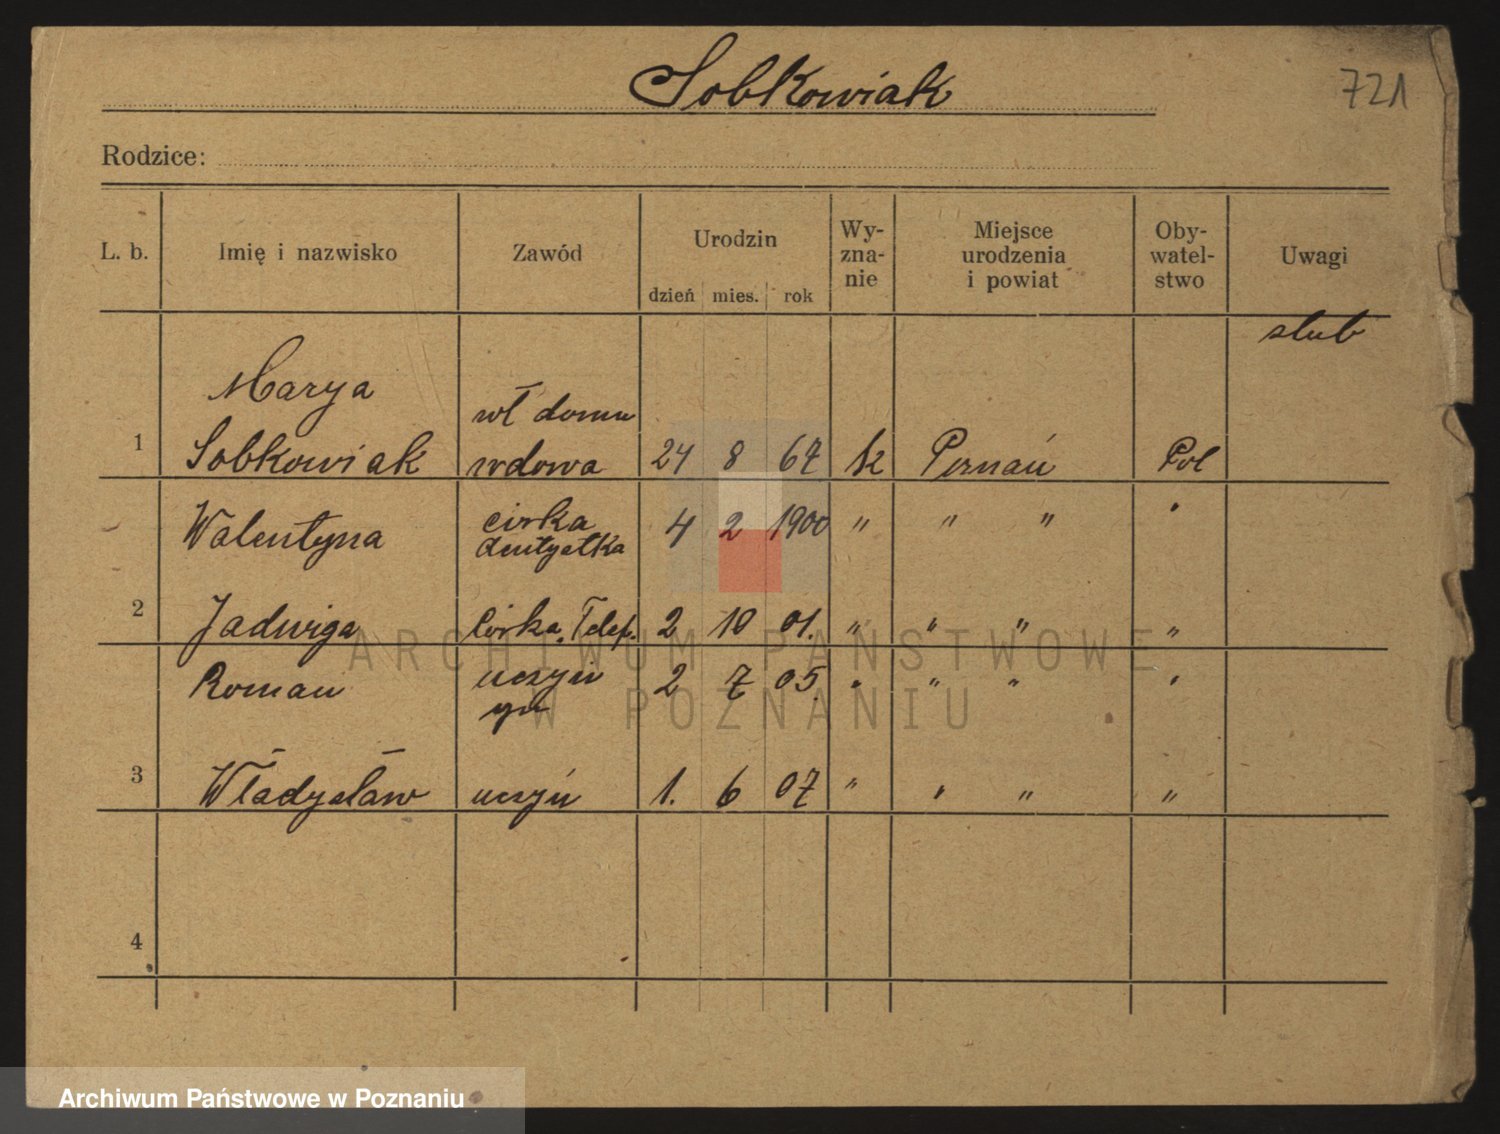 Sobkowiak
721
Rodzice:
L. b.
Imię i nazwisko
Zawód
Urodzin
dzień mies. rok
Wy-
zna-
nie
Miejsce
urodzenia
i powiat
Oby-
watel-
stwo
Uwagi
slub
Marya
wł domu
1 Sobkowiak wdowa 24 8 67 k Poznań Pol
Walentyna córka 4 2 1900 " " " "
dentystka
2 Jadwiga córka. Telef. 2 10 01. " " " "
Roman uczyń 2 7 05. " " " "
yn
3 Władysław uczyń 1. 6 07 " " " "
4
ARCHIWUM PAŃSTWOWE
W POZNANIU
Archiwum Państwowe w Poznaniu